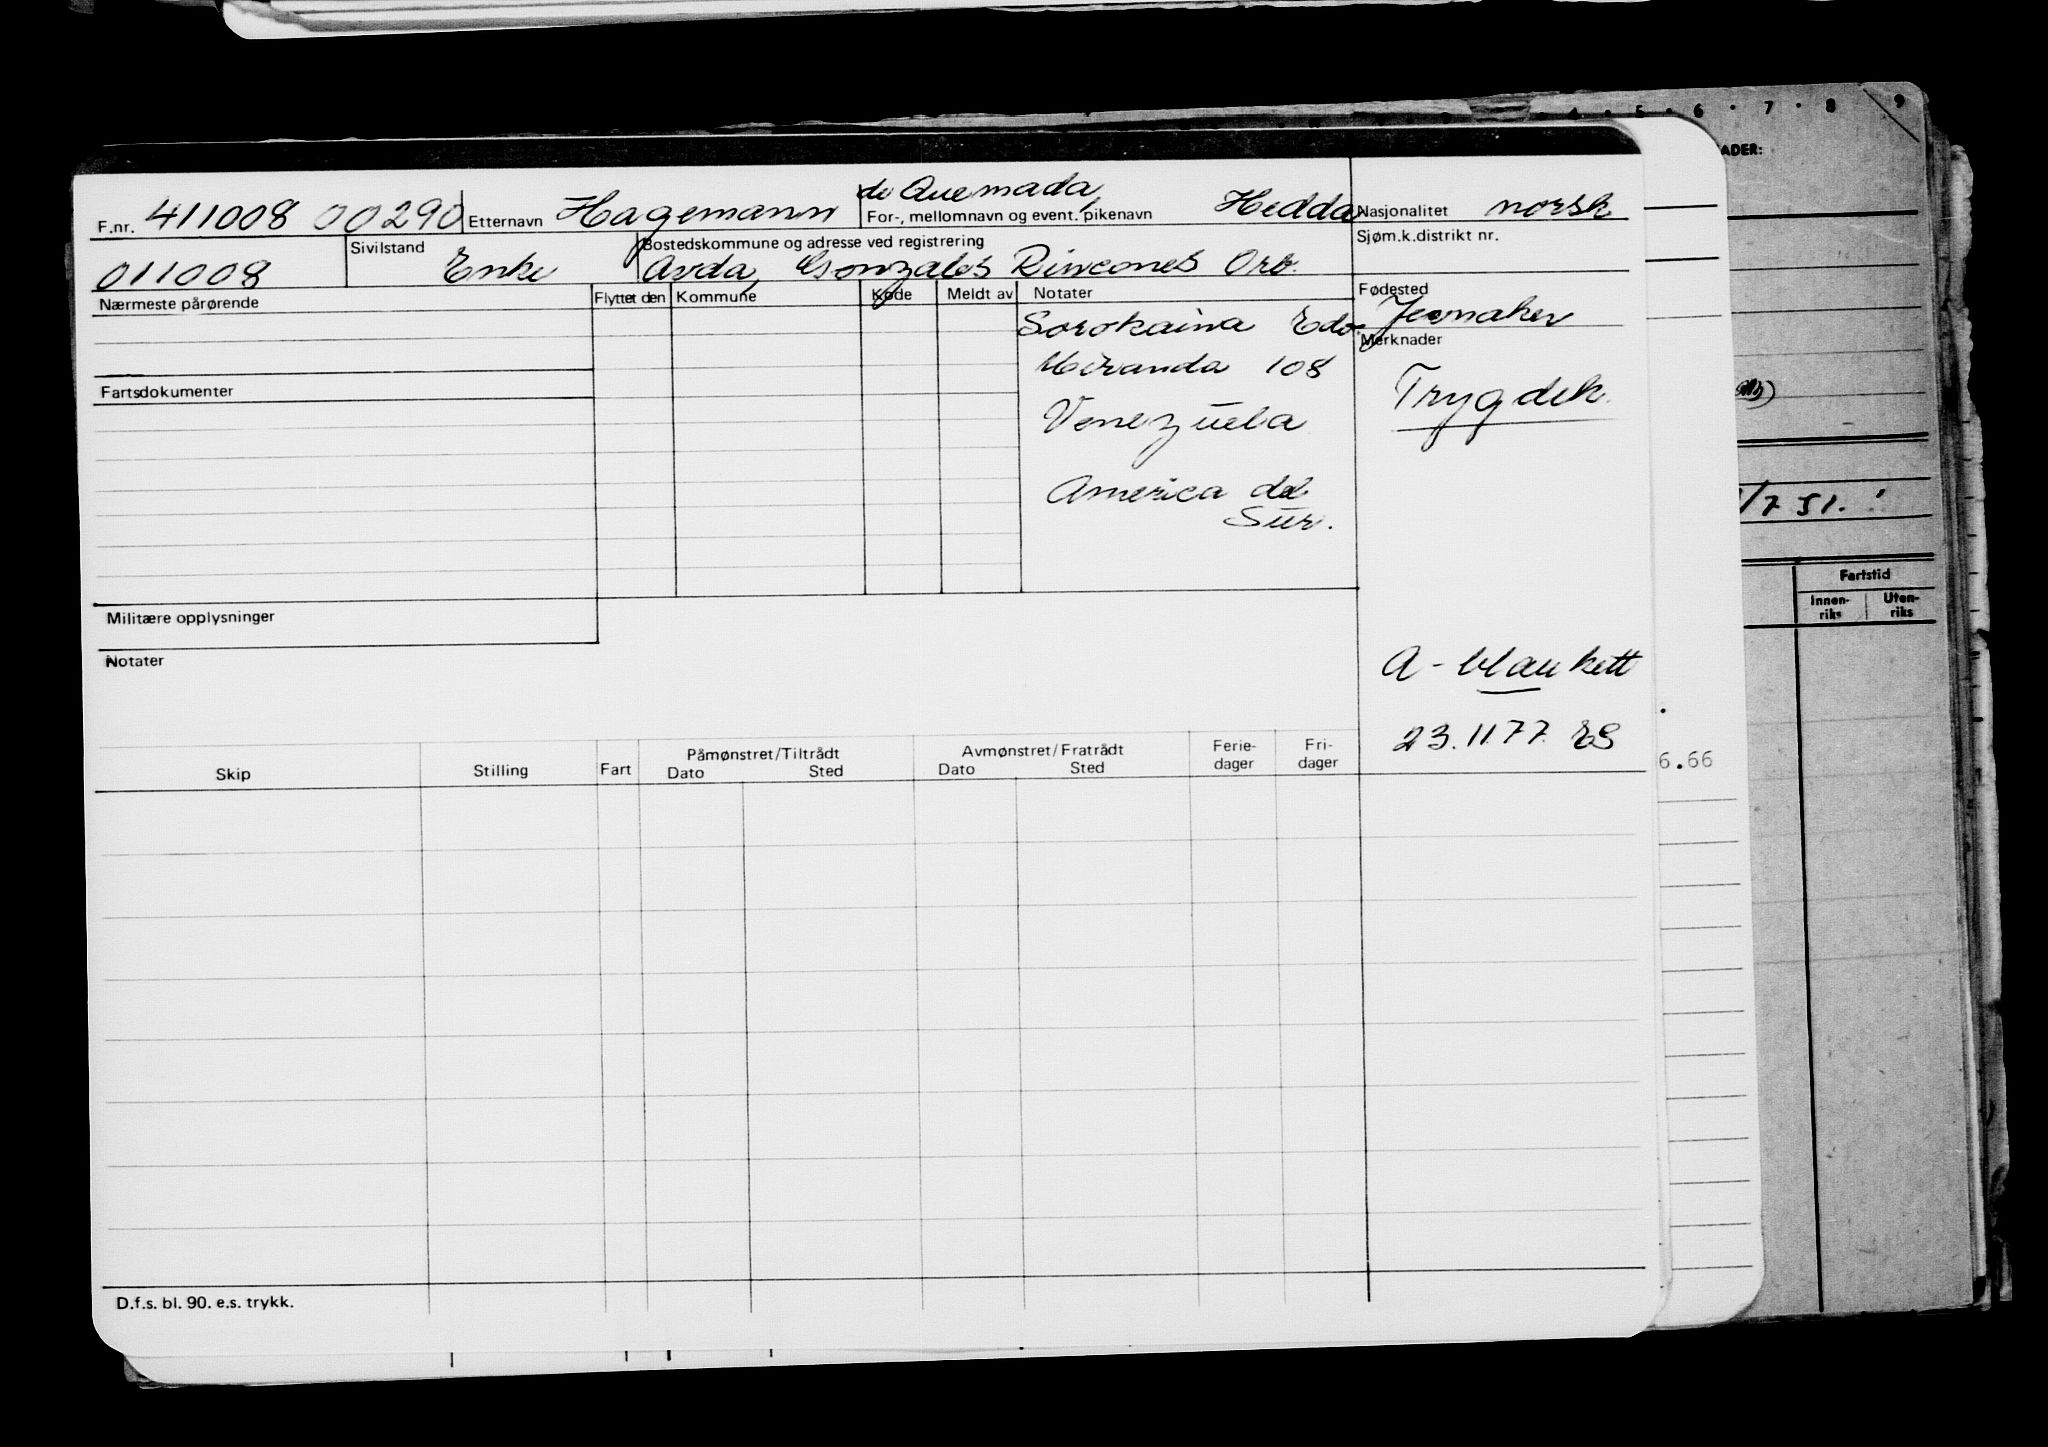 F.nr. 411008 00290 Etternavn Hagemann de Quemada, For-, mellomnavn og event. pikenavn Hedda Nasjonalitet norsk
011008 Sivilstand Enke Bostedskommune og adresse ved registrering Avda, Gonzales Rincones Orb. Sjøm.k.distrikt nr.
Nærmeste pårørende Flyttet den Kommune Kode Meldt av Notater Fødested
Sorokaina Edo Jeemaker
Merknader
Miranda 108
Fartsdokumenter Trygdek.
Venezuela
America del
Sur.
Militære opplysninger
Notater
A-blankett
23.11.77. ES
Skip Stilling Fart Påmønstret/Tiltrådt Dato Sted Avmønstret/Fratrådt Dato Sted Ferie-dager Fri-dager
D.f.s. bl. 90. e.s. trykk.
4 · 5 · 6 · 7 · 8 9
ADER:
/7 51.
Fartstid
Innen-riks Uten-riks
6.66